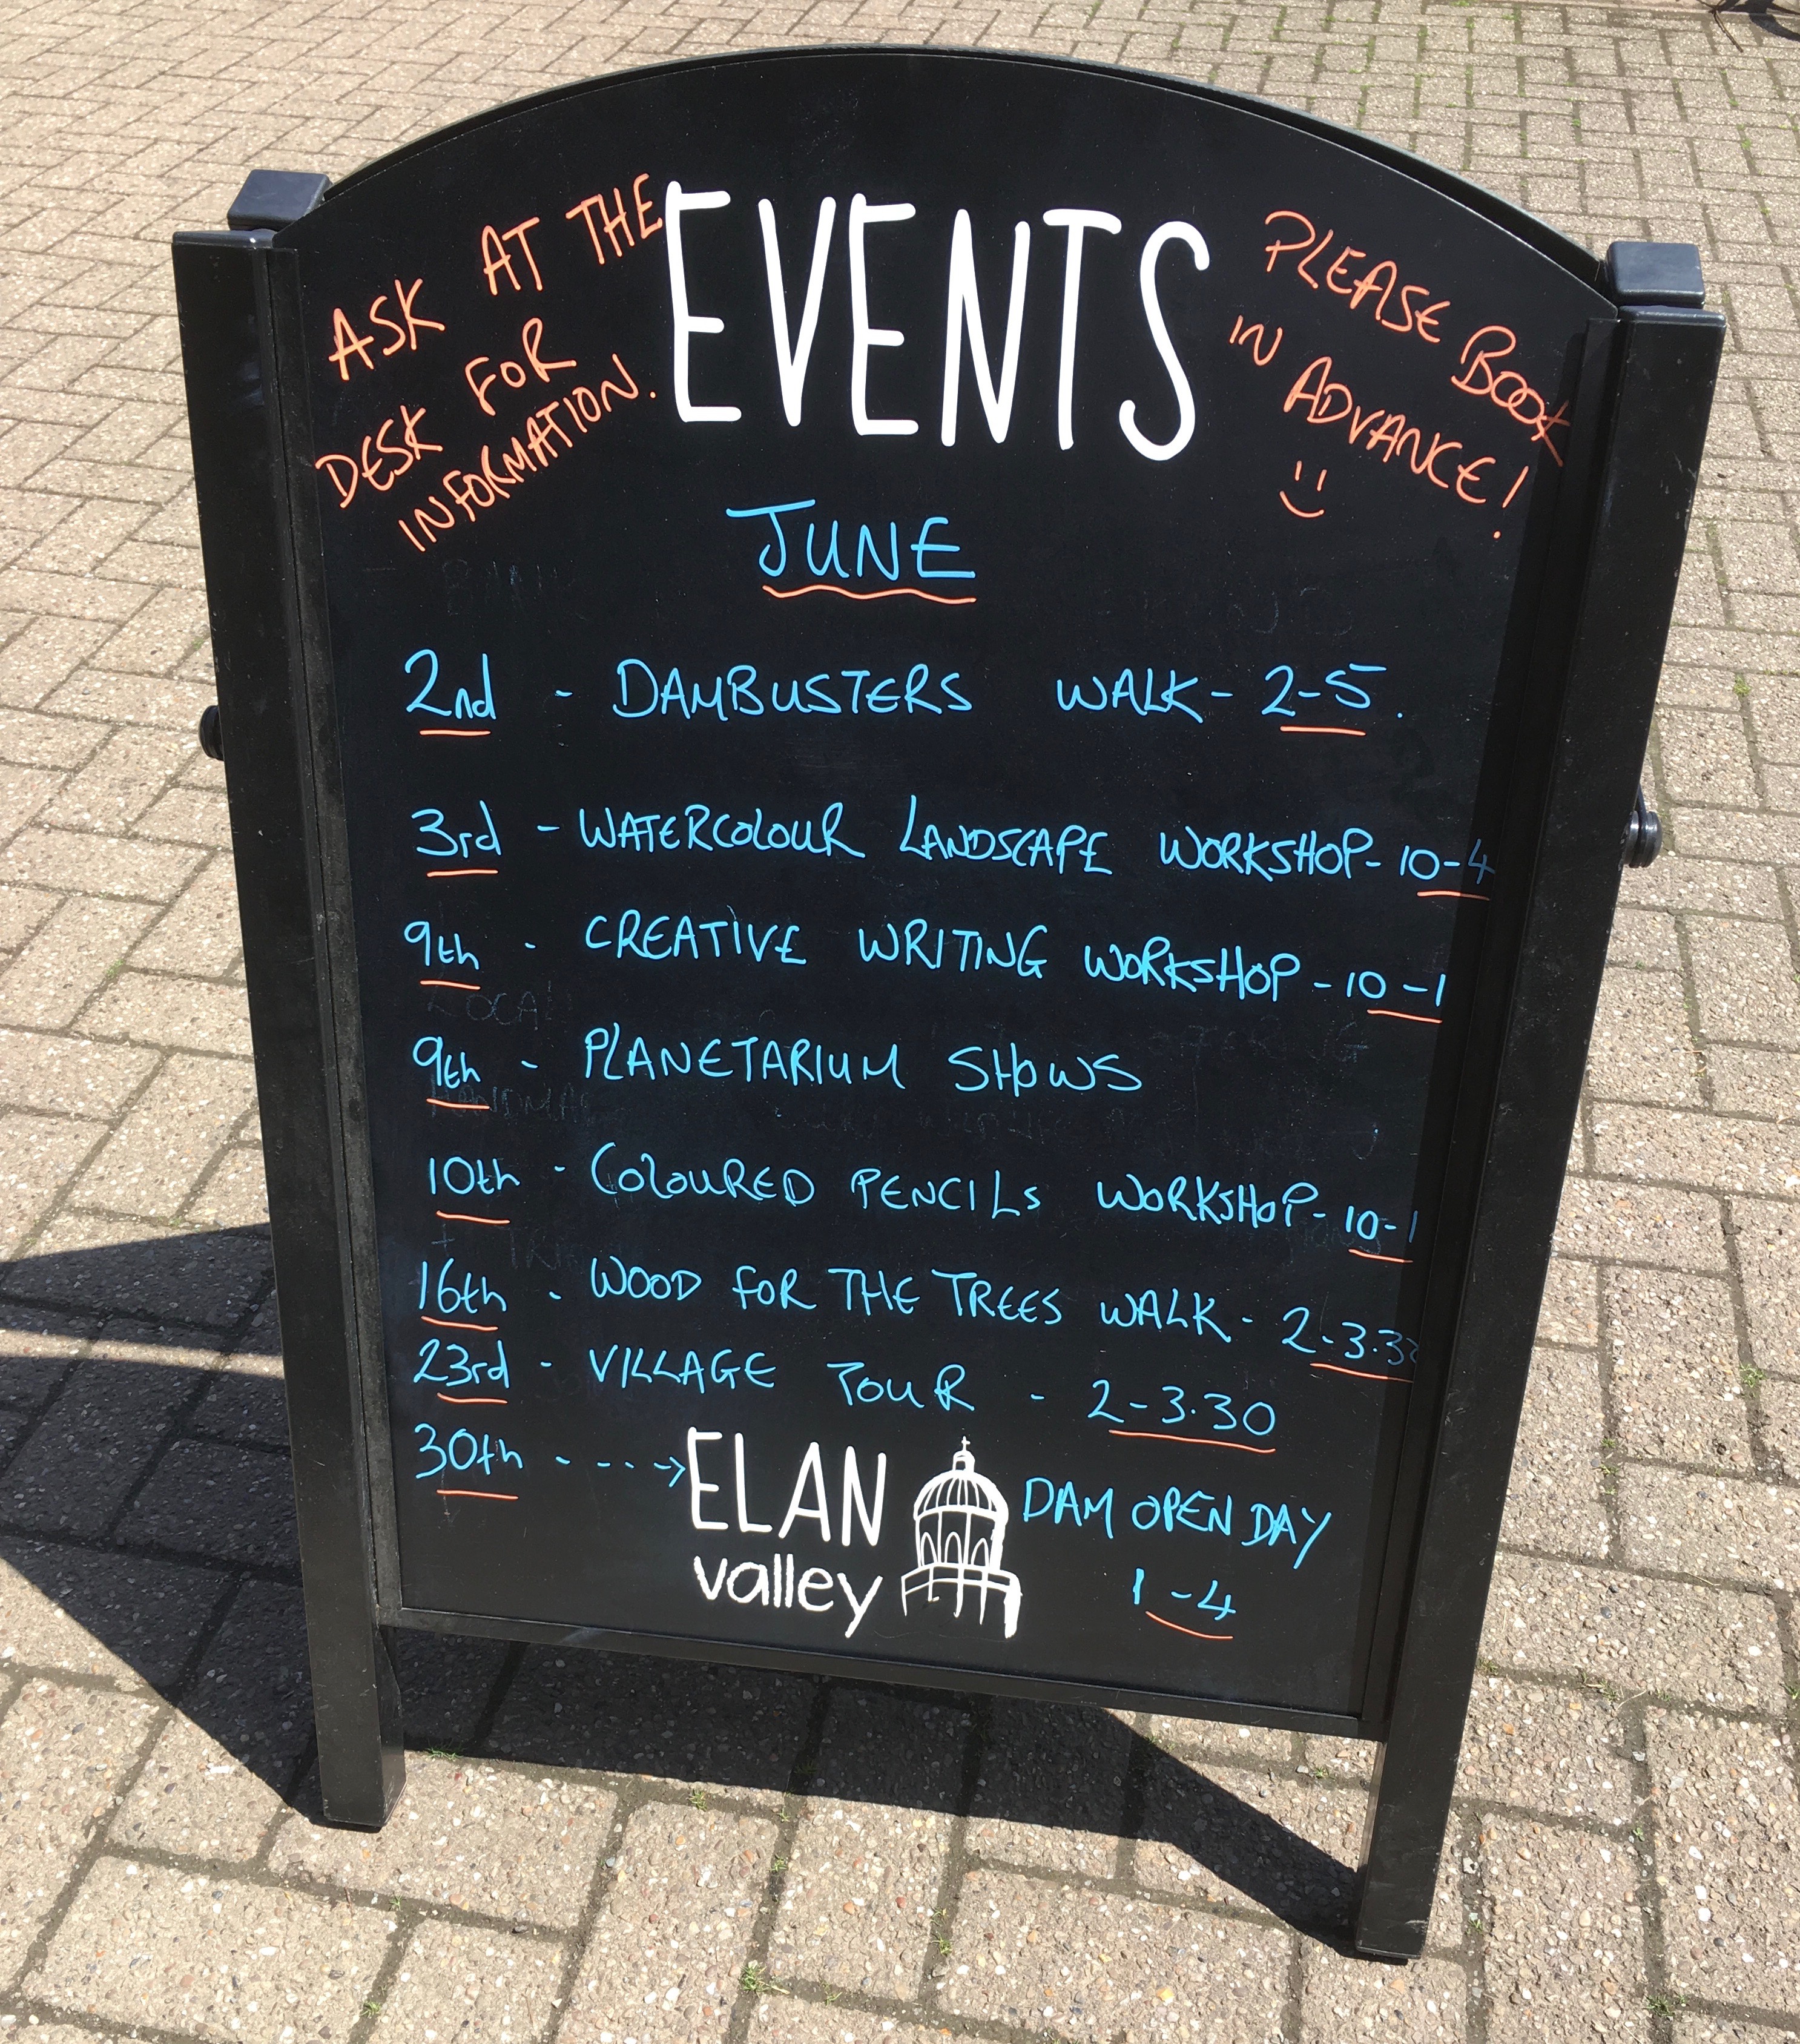 ASK AT THE
DESK FOR
INFORMATION.
EVENTS
PLEASE BOOK
IN ADVANCE!
JUNE
2nd - DAMBUSTERS WALK - 2-5.
3rd - WATERCOLOUR LANDSCAPE WORKSHOP - 10-4
9th - CREATIVE WRITING WORKSHOP - 10-1
9th - PLANETARIUM SHOWS
10th - COLOURED PENCILS WORKSHOP - 10-1
16th - WOOD FOR THE TREES WALK - 2-3.30
23rd - VILLAGE TOUR - 2-3.30
30th - - - -> ELAN valley DAM OPEN DAY
1-4